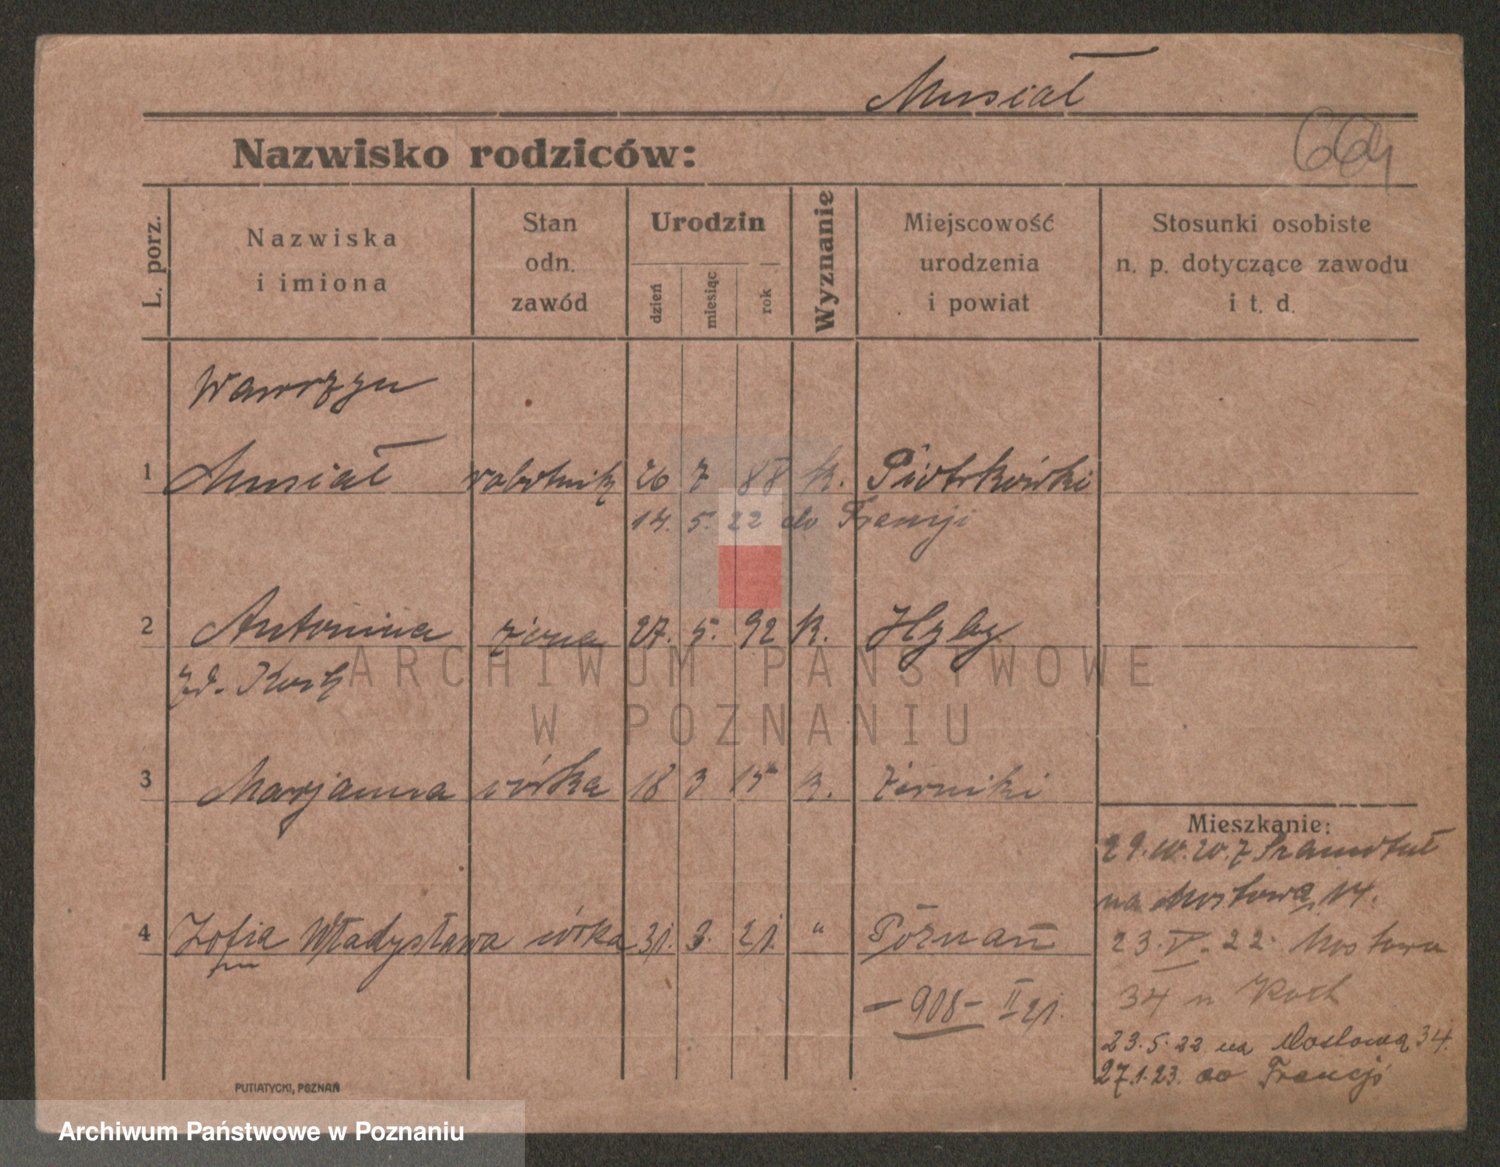 Musiał
Nazwisko rodziców:
664
L. porz.
Nazwiska
i imiona
Stan
odn.
zawód
Urodzin
dzień
miesiąc
rok
Wyznanie
Miejscowość
urodzenia
i powiat
Stosunki osobiste
n. p. dotyczące zawodu
i t. d.
Wawrzyn
1 Musiał robotnik 26 7 88 k. Piotrkówki
14. 5. 22 do Francji
2 Antonina żona 27. 5. 92 k.
zd. Koch
3 Marjanna córka 18 3 15 k. Żerniki
4 Zofia Władysława córka 31. 3. 21. " Poznań
— 908 — II 21.
Mieszkanie:
29.10.20. z
na Mostową 14.
23. V. 22. Mostowa
34 u Koch
23.5.22 na Mostową 34.
27.1.23. do Francji
PUTIATYCKI, POZNAŃ
ARCHIWUM PAŃSTWOWE
W POZNANIU
Archiwum Państwowe w Poznaniu